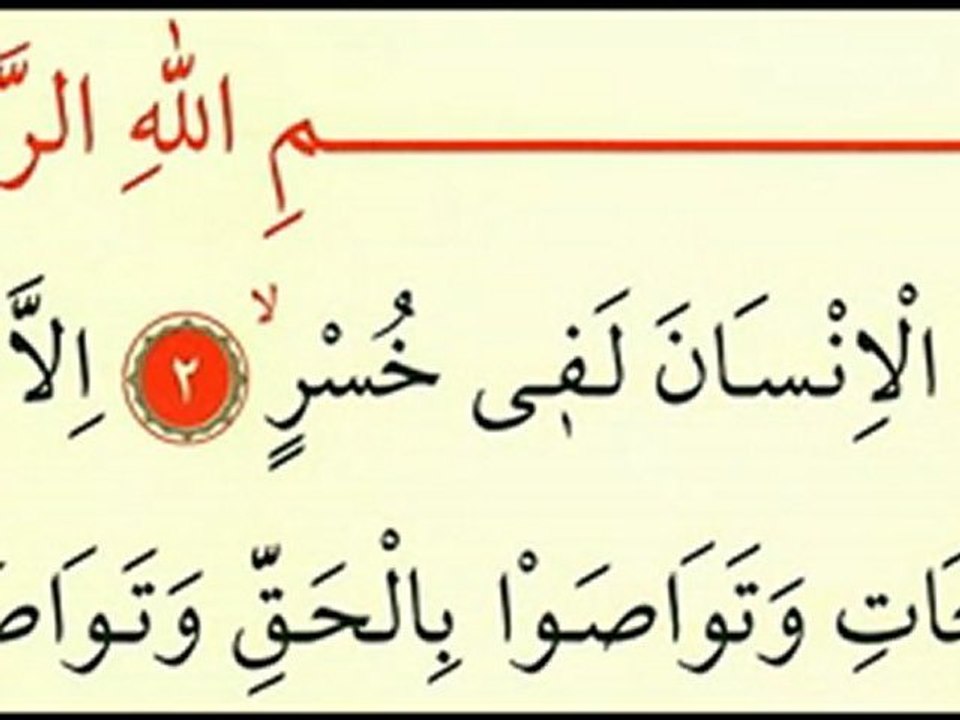 مِ اللّٰهِ الرَّ
الْاِنْسَانَ لَفٖى خُسْرٍ ۙ ٢ اِلاَّ
حَاتِ وَتَوَاصَوْا بِالْحَقِّ وَتَوَاصَ